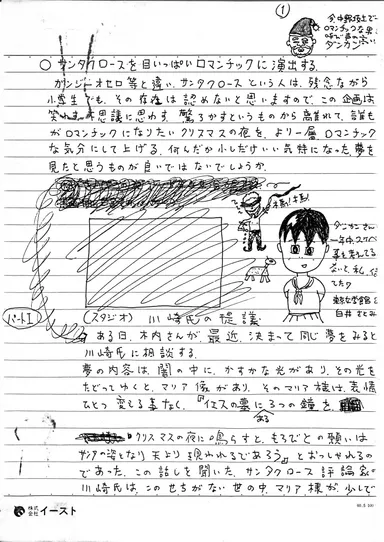 ①
ロマンチックな男
ダンカン
○ サンタクロースを目いっぱいロマンチックに演出する。
ガンジーオセロ等と違い、サンタクロースという人は、残念ながら
小学生でも、その存在は認めないと思いますので、この企画は
笑わす、不思議に思わす、驚ろかすというものから離れて、誰も
がロマンチックになりたいクリスマスの夜を、より一層ロマンチック
な気分にして上げる、何んだか少しだけいい気持になった夢を
見たと思うものが良いではないでしょうか。
ダンカンさん
一年中、スケベな
事を考えてる
パートI
(スタジオ) 川崎氏の提議
ある日、木内さんが、最近、決まって同じ夢をみると
川崎氏に相談する。
夢の内容は、闇の中に、かすかな光があり、その光を
たどってゆくと、マリア像があり、そのマリア様は、表情
ひとつ変える事なく、「イエスの墓に3つの鐘を、
ある
クリスマスの夜に鳴らすと、もろびとの願いは
サンタの姿となり天より現われるであろう」とおっしゃれるの
であった。この話しを聞いた、サンタクロース評論家の
川崎氏は、このせちがない世の中、マリア様が、少しで
株式会社 イースト